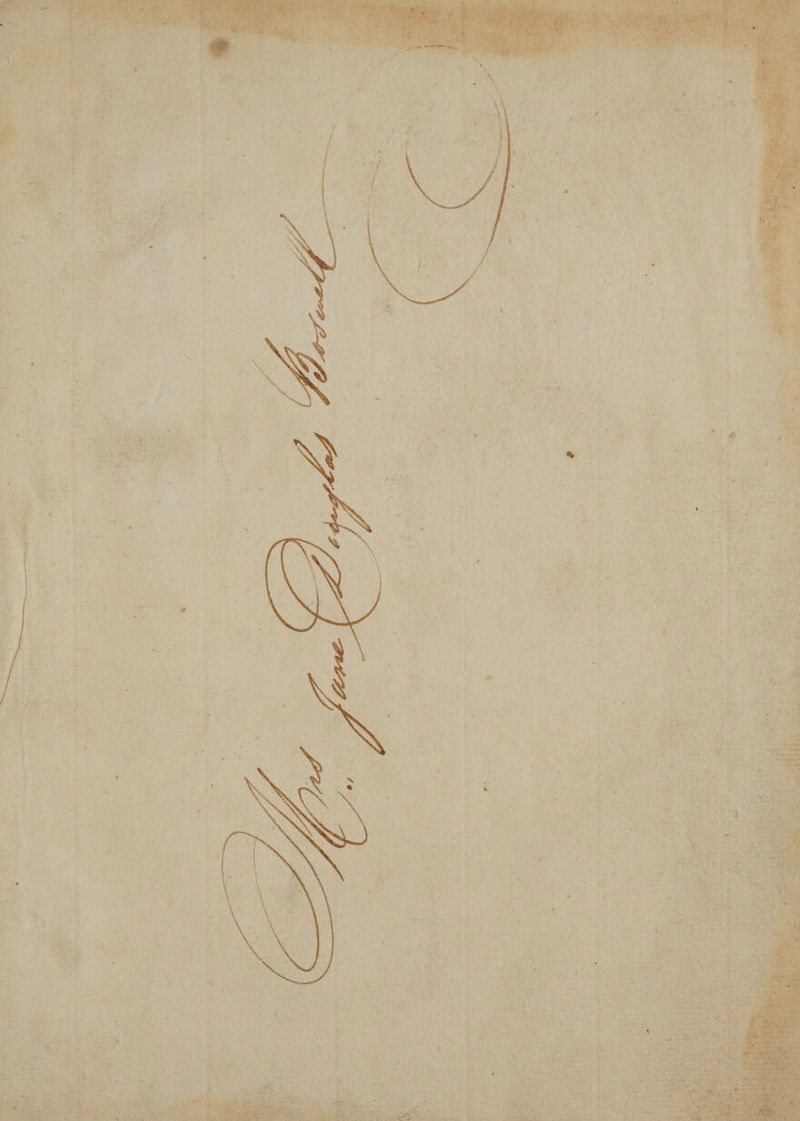 Mrs Jane Douglas Boswell